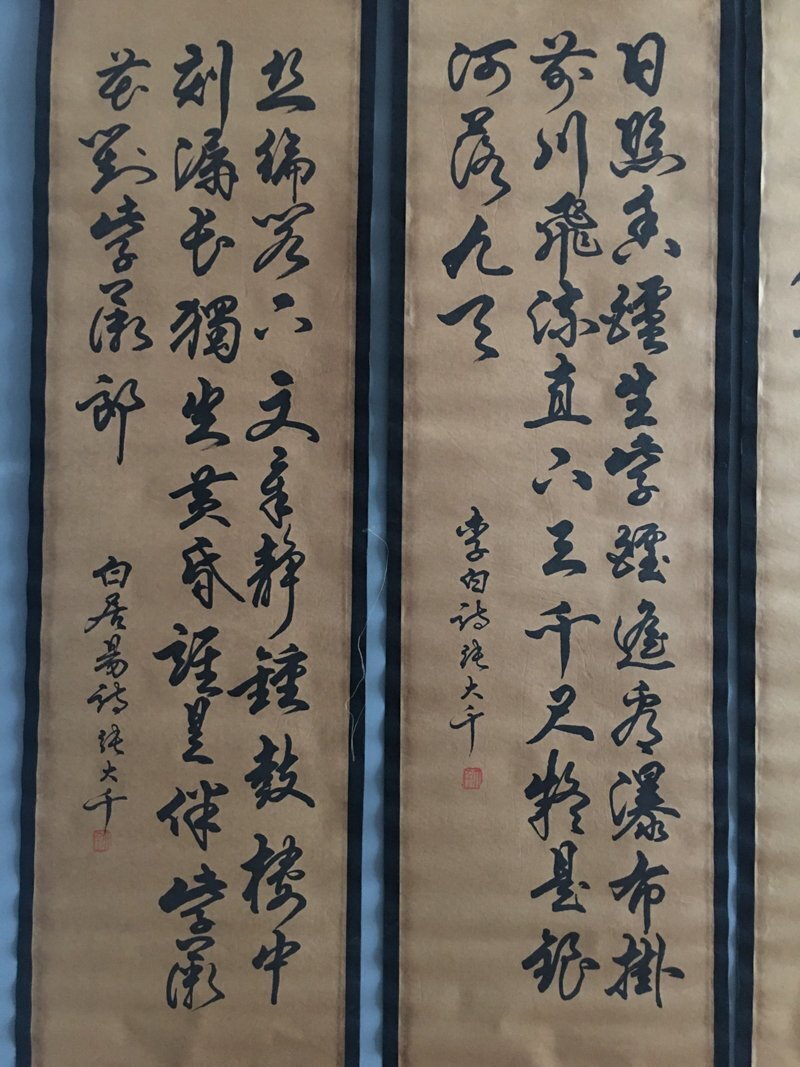 日照香爐生紫煙遙看瀑布掛
前川飛流直下三千尺疑是銀
河落九天
李白詩張大千
丝綸閣下文章靜鍾鼓樓中
刻漏長獨坐黃昏誰是伴紫薇
花對紫薇郎
白居易詩張大千